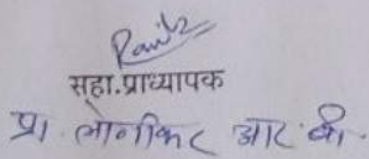 सहा.प्राध्यापक
प्रा. लोणीकर आर. बी.